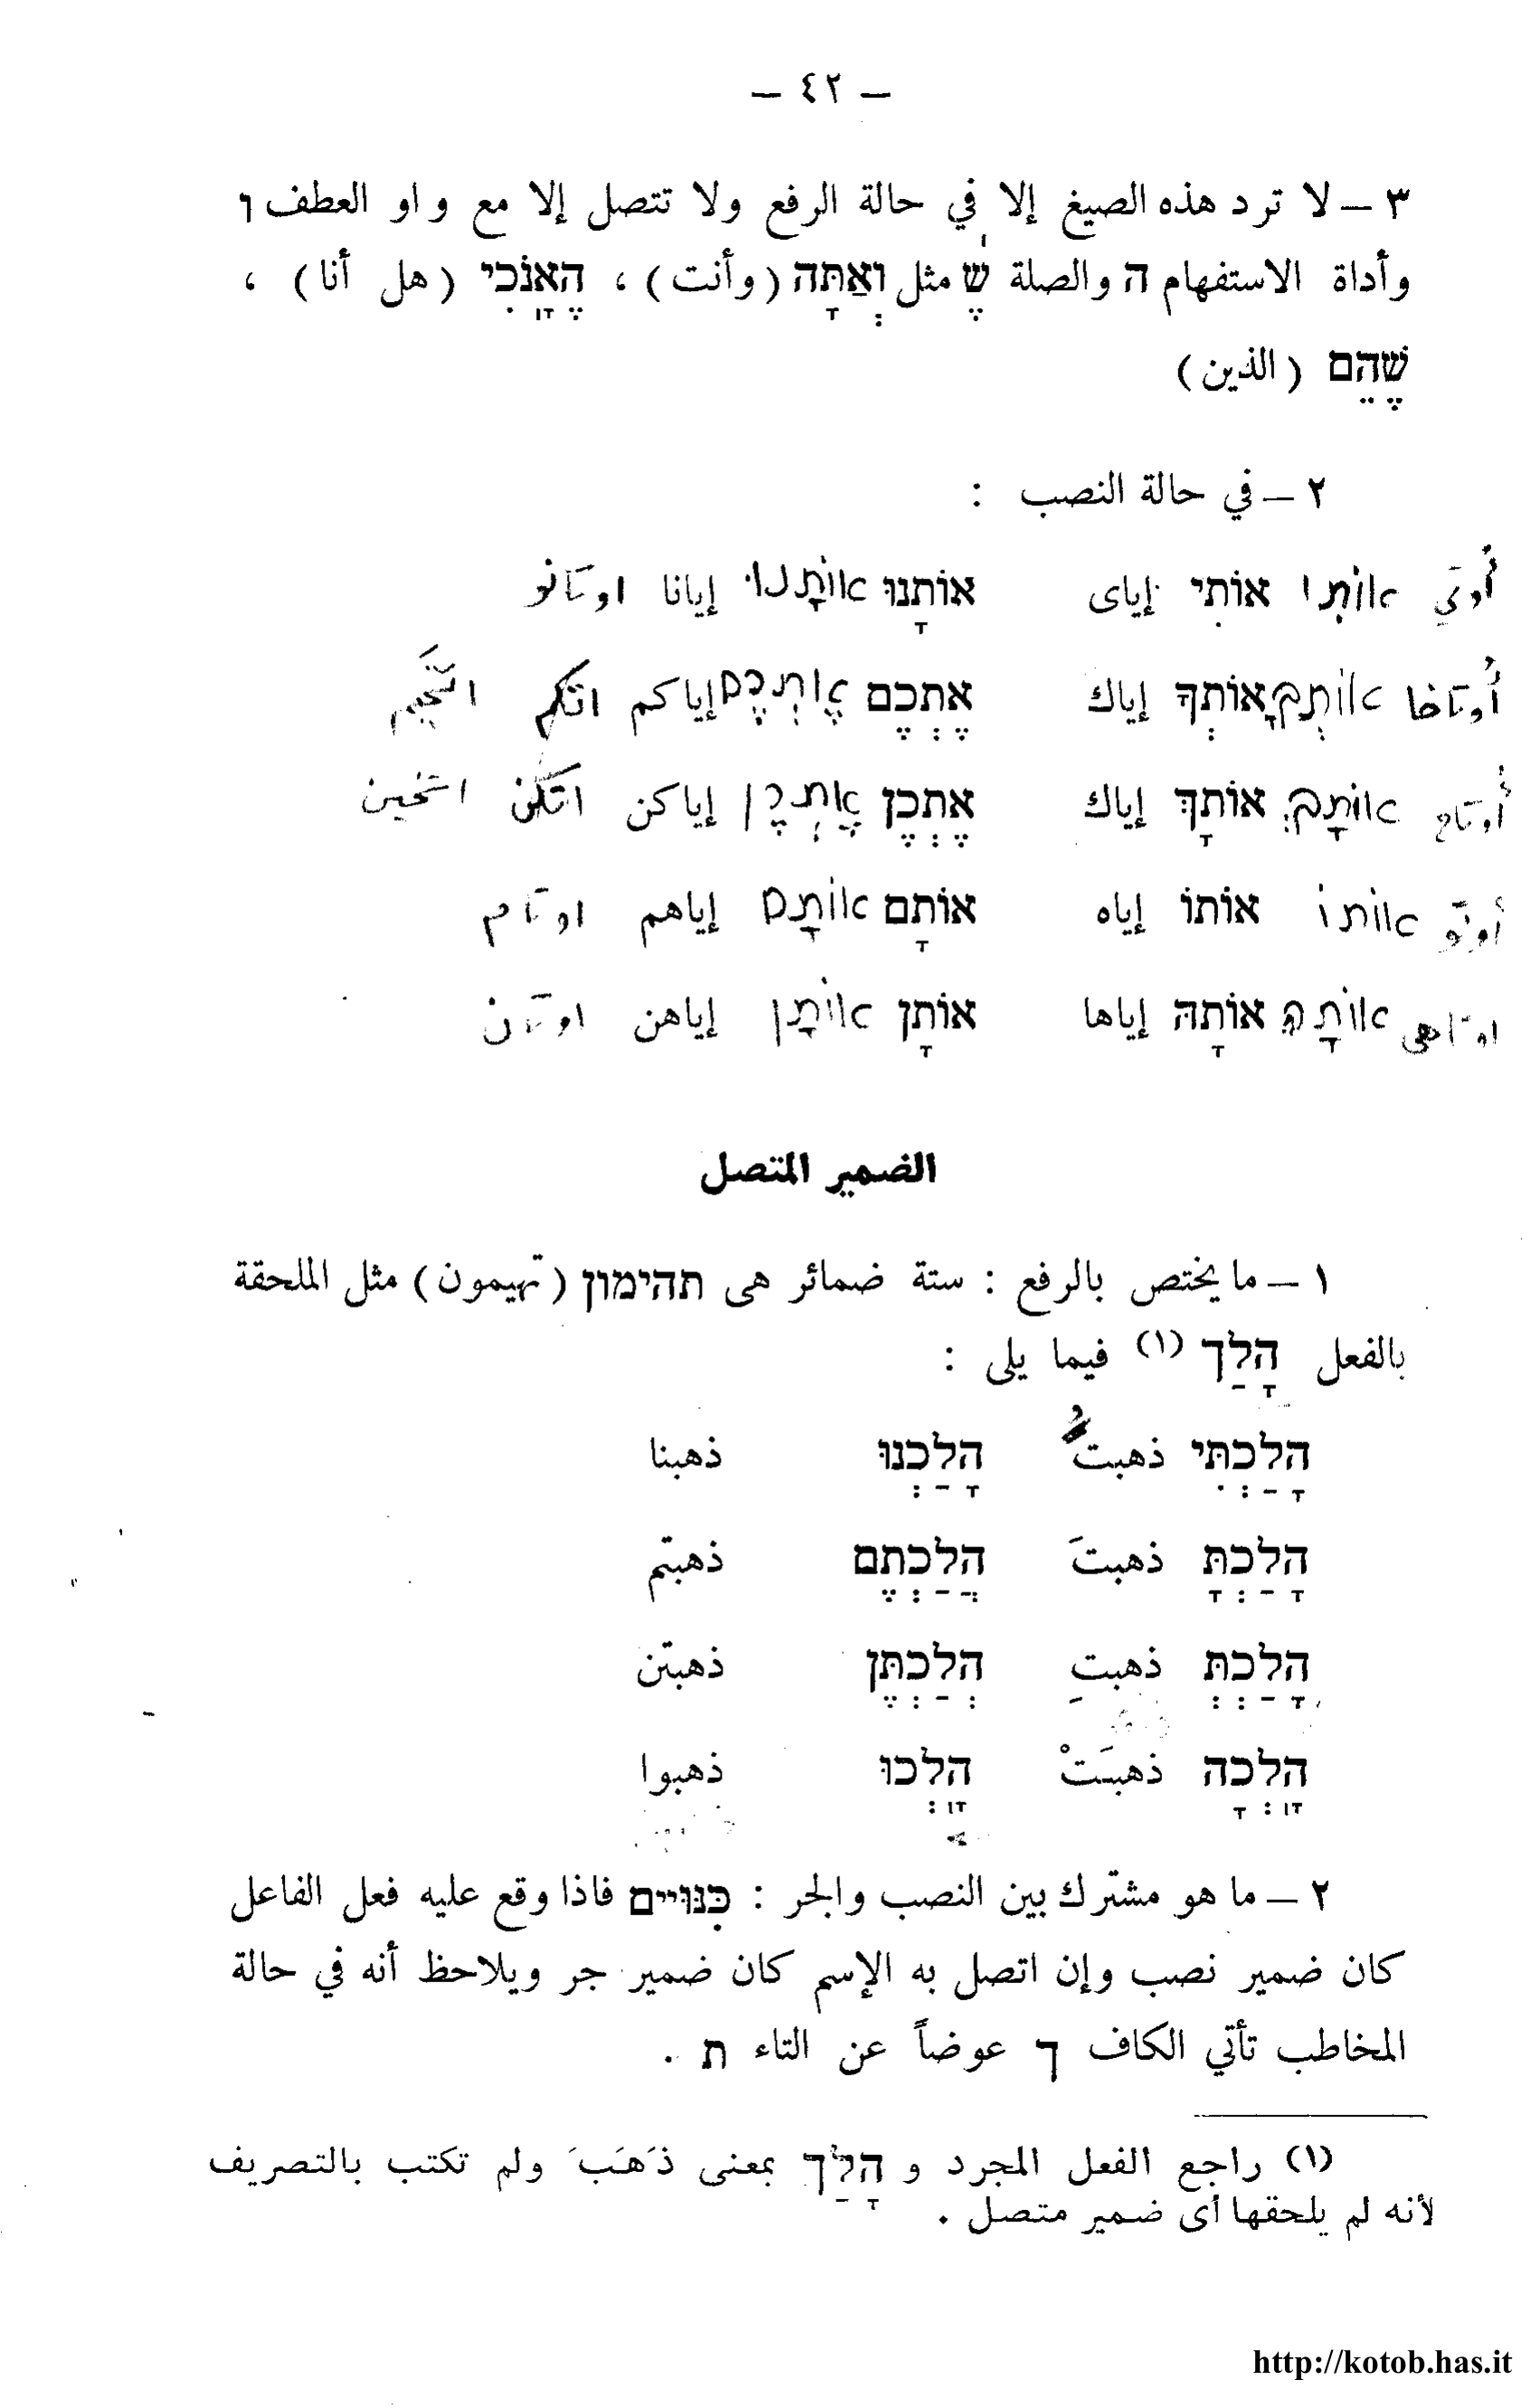 — ٤٢ —
٣ — لا ترد هذه الصيغ إلا في حالة الرفع ولا تتصل إلا مع واو العطف ו
وأداة الاستفهام ה والصلة שֶׁ مثل וְאַתָּה (وأنت) ، הֶאָנֹכִי (هل أنا) ،
שֶׁהֵם (الذين)
٢ — في حالة النصب :
אותי אוֹתִי إياى אוֹתָנוּ אוֹתָנוּ إيانا اوتانو
أوتاخا אוֹתְךָ אוֹתְךָ إياك אֶתְכֶם אֶתְכֶם إياكم اتكم
أوتاخ אוֹתָךְ אוֹתָךְ إياك אֶתְכֶן אֶתְכֶן إياكن اتكن اتخين
أوتو אותו אוֹתוֹ إياه אוֹתָם אוֹתָם إياهم اوتام
اوتاهى אוֹתָהּ אוֹתָהּ إياها אוֹתָן אוֹתָן إياهن اوتان
الضمير المتصل
١ — ما يختص بالرفع : ستة ضمائر هى תהימון (تهيمون) مثل الملحقة
بالفعل הָלַך (١) فيما يلى :
הָלַכְתִּי ذهبتُ הָלַכְנוּ ذهبنا
הָלַכְתָּ ذهبتَ הֲלַכְתֶם ذهبتم
הָלַכְתְּ ذهبتِ הְלַכְתֶּן ذهبتن
הָלְכָה ذهبَتْ הָלְכוּ ذهبوا
٢ — ما هو مشترك بين النصب والجر : כִּנוּיים فاذا وقع عليه فعل الفاعل
كان ضمير نصب وإن اتصل به الإسم كان ضمير جر ويلاحظ أنه في حالة
المخاطب تأتي الكاف ך عوضاً عن التاء ת .
(١) راجع الفعل المجرد و הָלַך بمعنى ذَهَبَ ولم تكتب بالتصريف
لأنه لم يلحقها أى ضمير متصل .
http://kotob.has.it